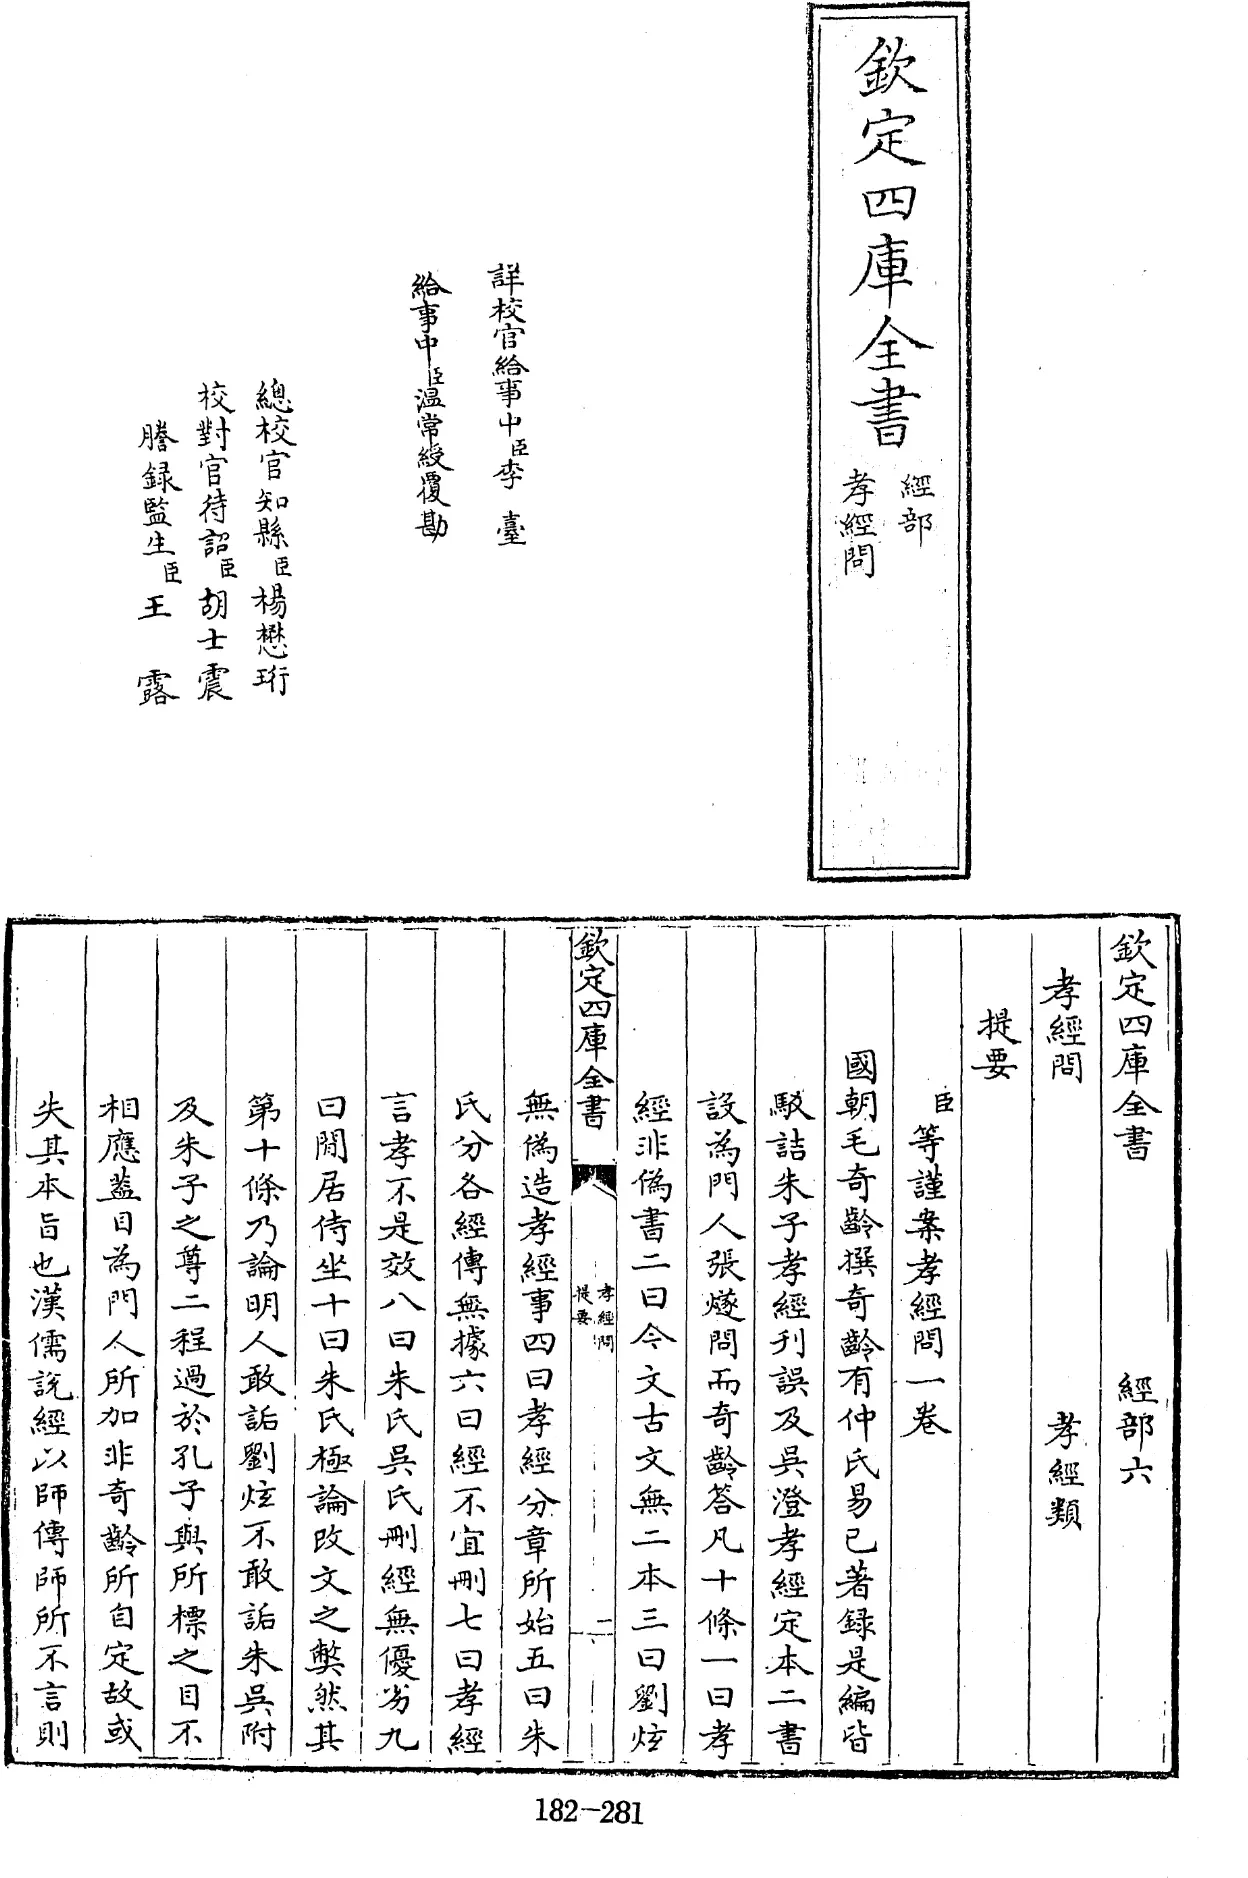 欽定四庫全書
經部
孝經問
詳校官給事中臣李臺
給事中臣温常綬覆勘
總校官知縣臣楊懋珩
校對官待詔臣胡士震
謄録監生臣王露
欽定四庫全書 經部六
孝經問 孝經類
提要
臣等謹案孝經問一卷
國朝毛奇齡撰奇齡有仲氏易已著録是編皆
駁詰朱子孝經刋誤及吳澄孝經定本二書
設為門人張燧問而奇齡答凡十條一曰孝
經非偽書二曰今文古文無二本三曰劉炫
欽定四庫全書
孝經問
提要
二
無偽造孝經事四曰孝經分章所始五曰朱
氏分各經傳無據六曰經不宜刪七曰孝經
言孝不是效八曰朱氏吳氏刪經無優劣九
曰閒居侍坐十曰朱氏極論改文之弊然其
第十條乃論明人敢詬劉炫不敢詬朱吳附
及朱子之尊二程過於孔子與所標之目不
相應蓋目為門人所加非奇齡所自定故或
失其本旨也漢儒說經以師傳師所不言則
182-281